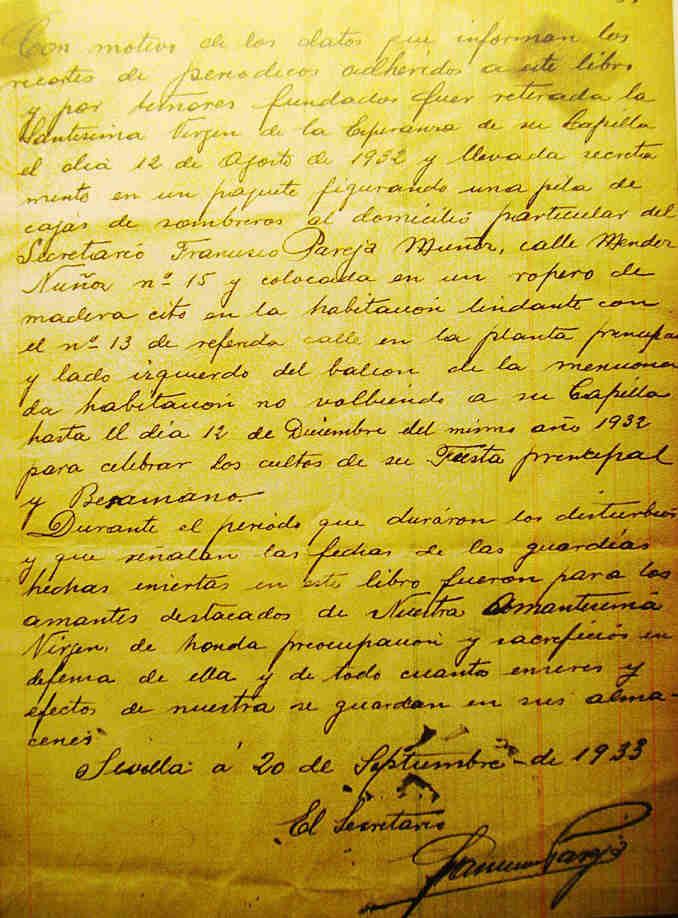 Con motivo de los datos que informan los
recortes de periodicos adheridos a este libro
y por temores fundados fuer retirada la
Santisima Virgen de la Esperanza de su Capilla
el dia 12 de Agosto de 1932 y llevada secreta
mente en un paquete figurando una pila de
cajas de sombreros al domicilio particular del
Secretario Francisco Pareja Muñoz, calle Mendez
Nuñez nº 15 y colocada en un ropero de
madera cito en la habitacion lindante con
el nº 13 de referida calle en la planta principal
y lado izquierdo del balcon de la menciona
da habitacion no volbiendo a su Capilla
hasta el dia 12 de Diciembre del mismo año 1932
para celebrar los cultos de su Fiesta principal
y Besamano.
Durante el periodo que duráron los disturbios
y que señalan las fechas de las guardias
hechas eniertas en este libro fueron para los
amantes destacados de Nuestra Amantisima
Virgen, de honda preocupacion y sacrificios en
defensa de ella y de todo cuanto enseres y
efectos de nuestra se guardan en sus alma-
cenes
Sevilla á 20 de Septiembre de 1933
El Secretario
Francisco Pareja